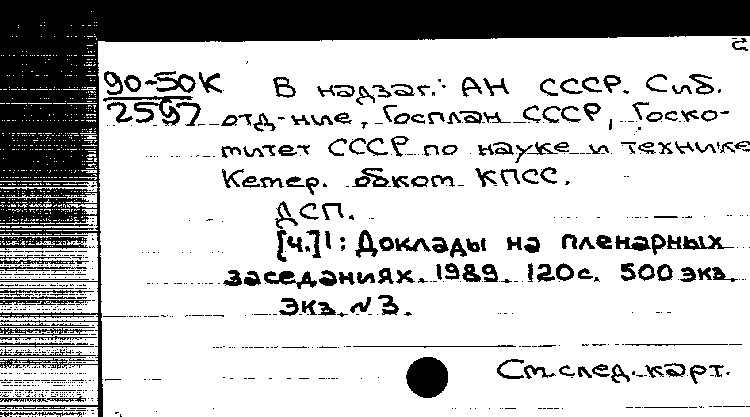 90-50К В надзаг.: АН СССР. Сиб.
2597 отд-ние, Госплан СССР, Госко-
митет СССР по науке и технике
Кемер. обком КПСС.
ДСП.
[ч.]1: Доклады на пленарных
заседаниях. 1989. 120с. 500 экз.
Экз. №3.
См. след. карт.